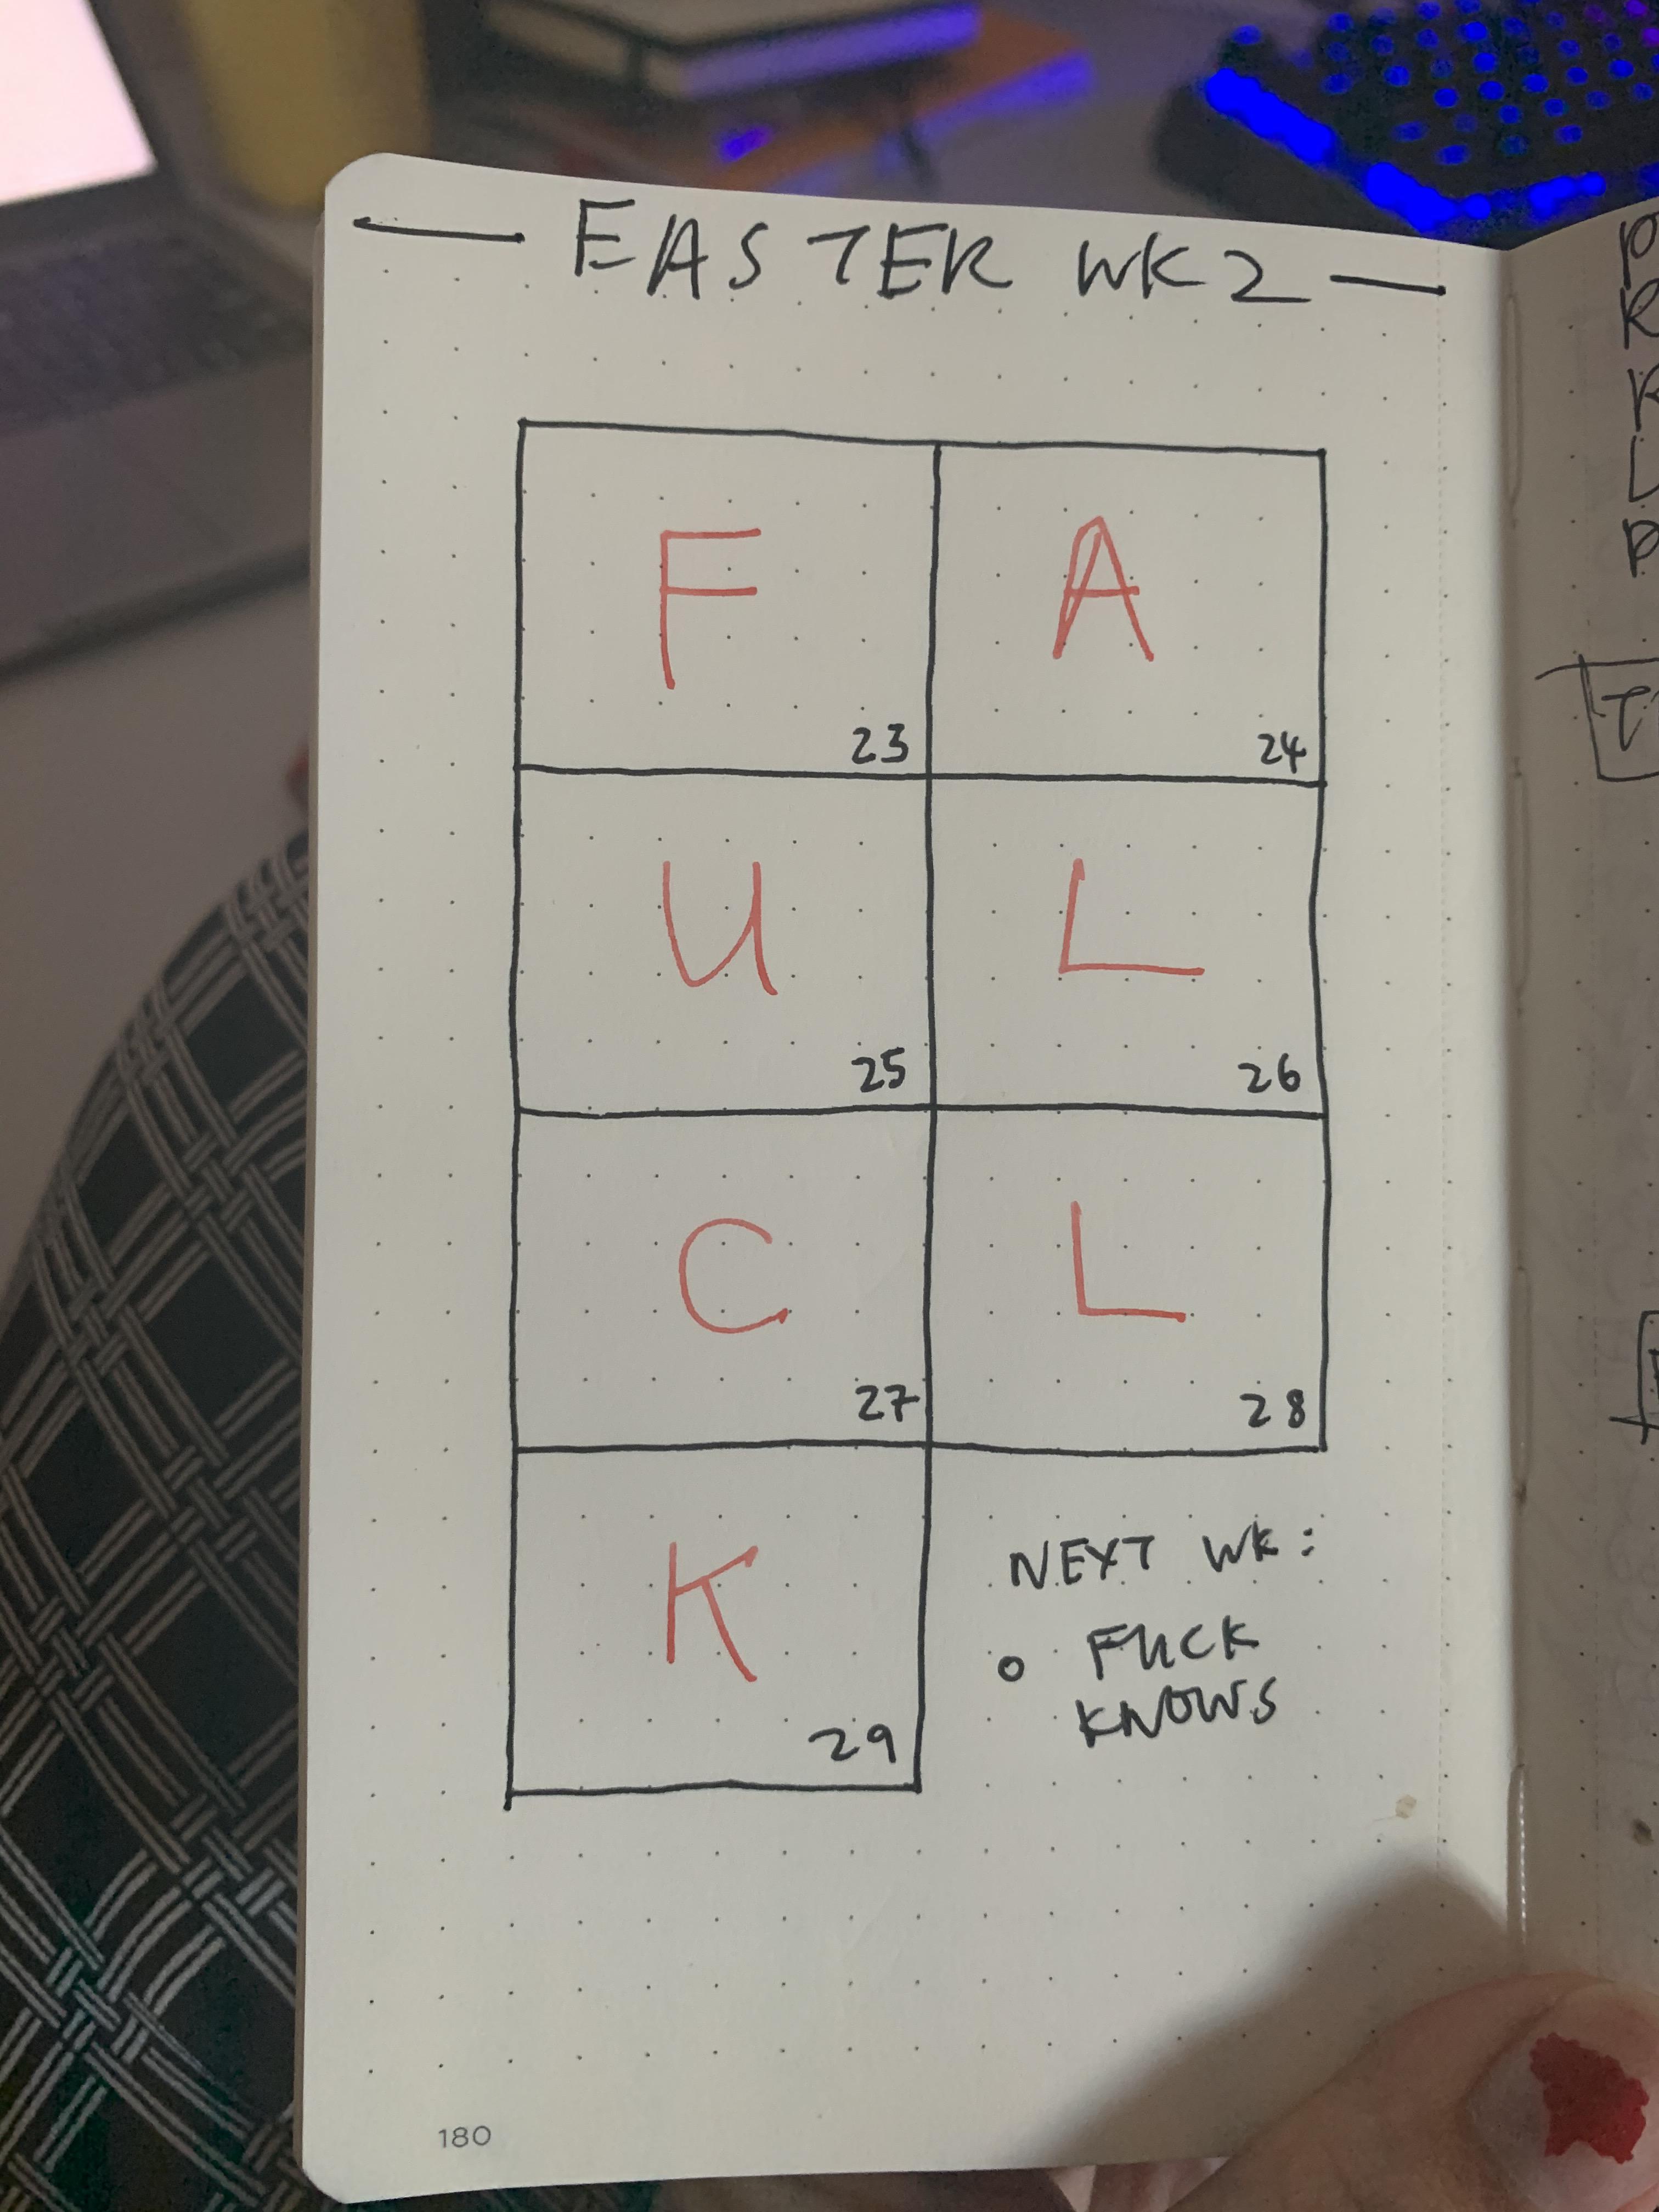 EASTER WK 2
F
A
23
24
U
L
25
26
C
L
27
28
K
29
NEXT WK:
FUCK
KNOWS
180